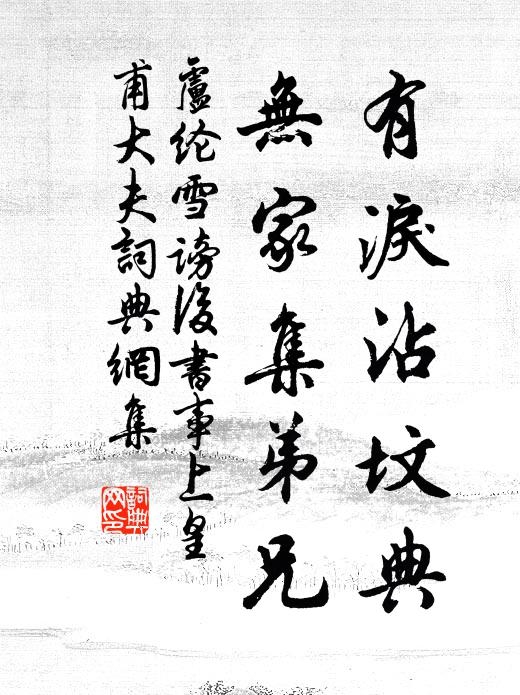 有淚沾墳典
無家集弟兄
盧纶雪謗後書事上皇
甫大夫詞典網集
詞典网印